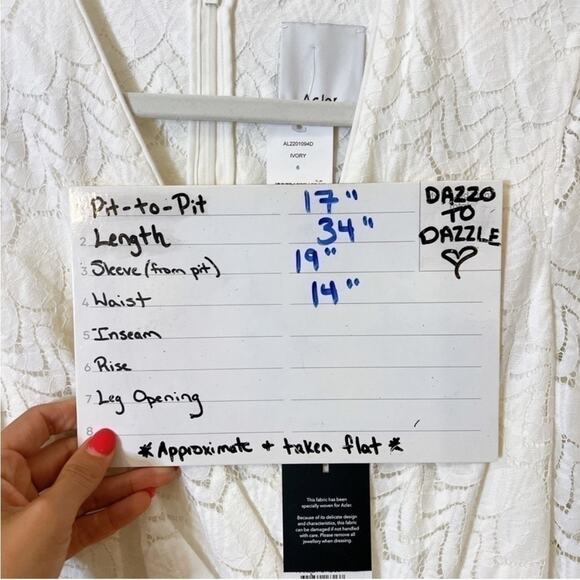 Acler
AL2201094D
IVORY
6
Pit-to-Pit 17"
2 Length 34"
3 Sleeve (from pit) 19"
4 Waist 14"
5 Inseam
6 Rise
7 Leg Opening
8
*Approximate + taken flat*
DAZZO
TO
DAZZLE
This fabric has been
specially woven for Acler.
Because of its delicate design
and characteristics, this fabric
can be damaged if not handled
with care. Please remove all
jewellery when dressing.